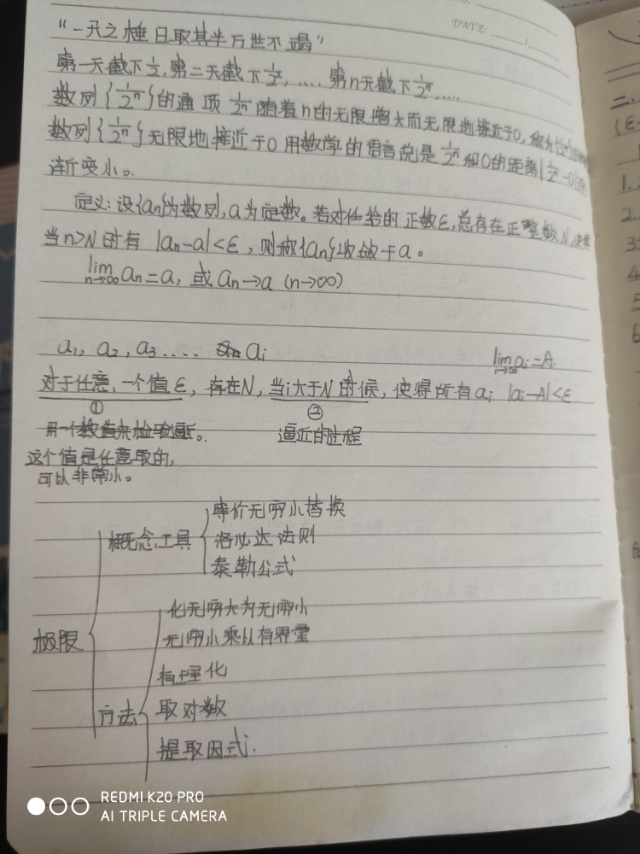 NO.
DATE:
“一尺之棰日取其半万世不竭”
第一天截下1/2,第二天截下1/2²,....第n天截下1/2ⁿ,....
数列{1/2ⁿ}的通项1/2ⁿ随着n的无限增大而无限地接近于0,
数列{1/2ⁿ}无限地接近于0用数学的语言说是1/2ⁿ和0的距离|1/2ⁿ-0|
渐变小。
定义:设{an}为数列,a为定数。若对任给的正数ε,总存在正整数N,
当n>N时有|an-a|<ε,则称{an}收敛于a。
lim n→∞ an=a,或an→a(n→∞)
a1,a2,a3.... ai
lim ai=A
对于任意,一个值ε,存在N,当i大于N的时候,使得所有ai |ai-A|<ε
① ②
逼近的过程
这个值是任意取的,
可以非常小。
等价无穷小替换
概念、工具 洛必达法则
泰勒公式
化无穷大为无穷小
极限 无穷小乘以有界量
有理化
方法 取对数
提取因式.
REDMI K20 PRO
AI TRIPLE CAMERA